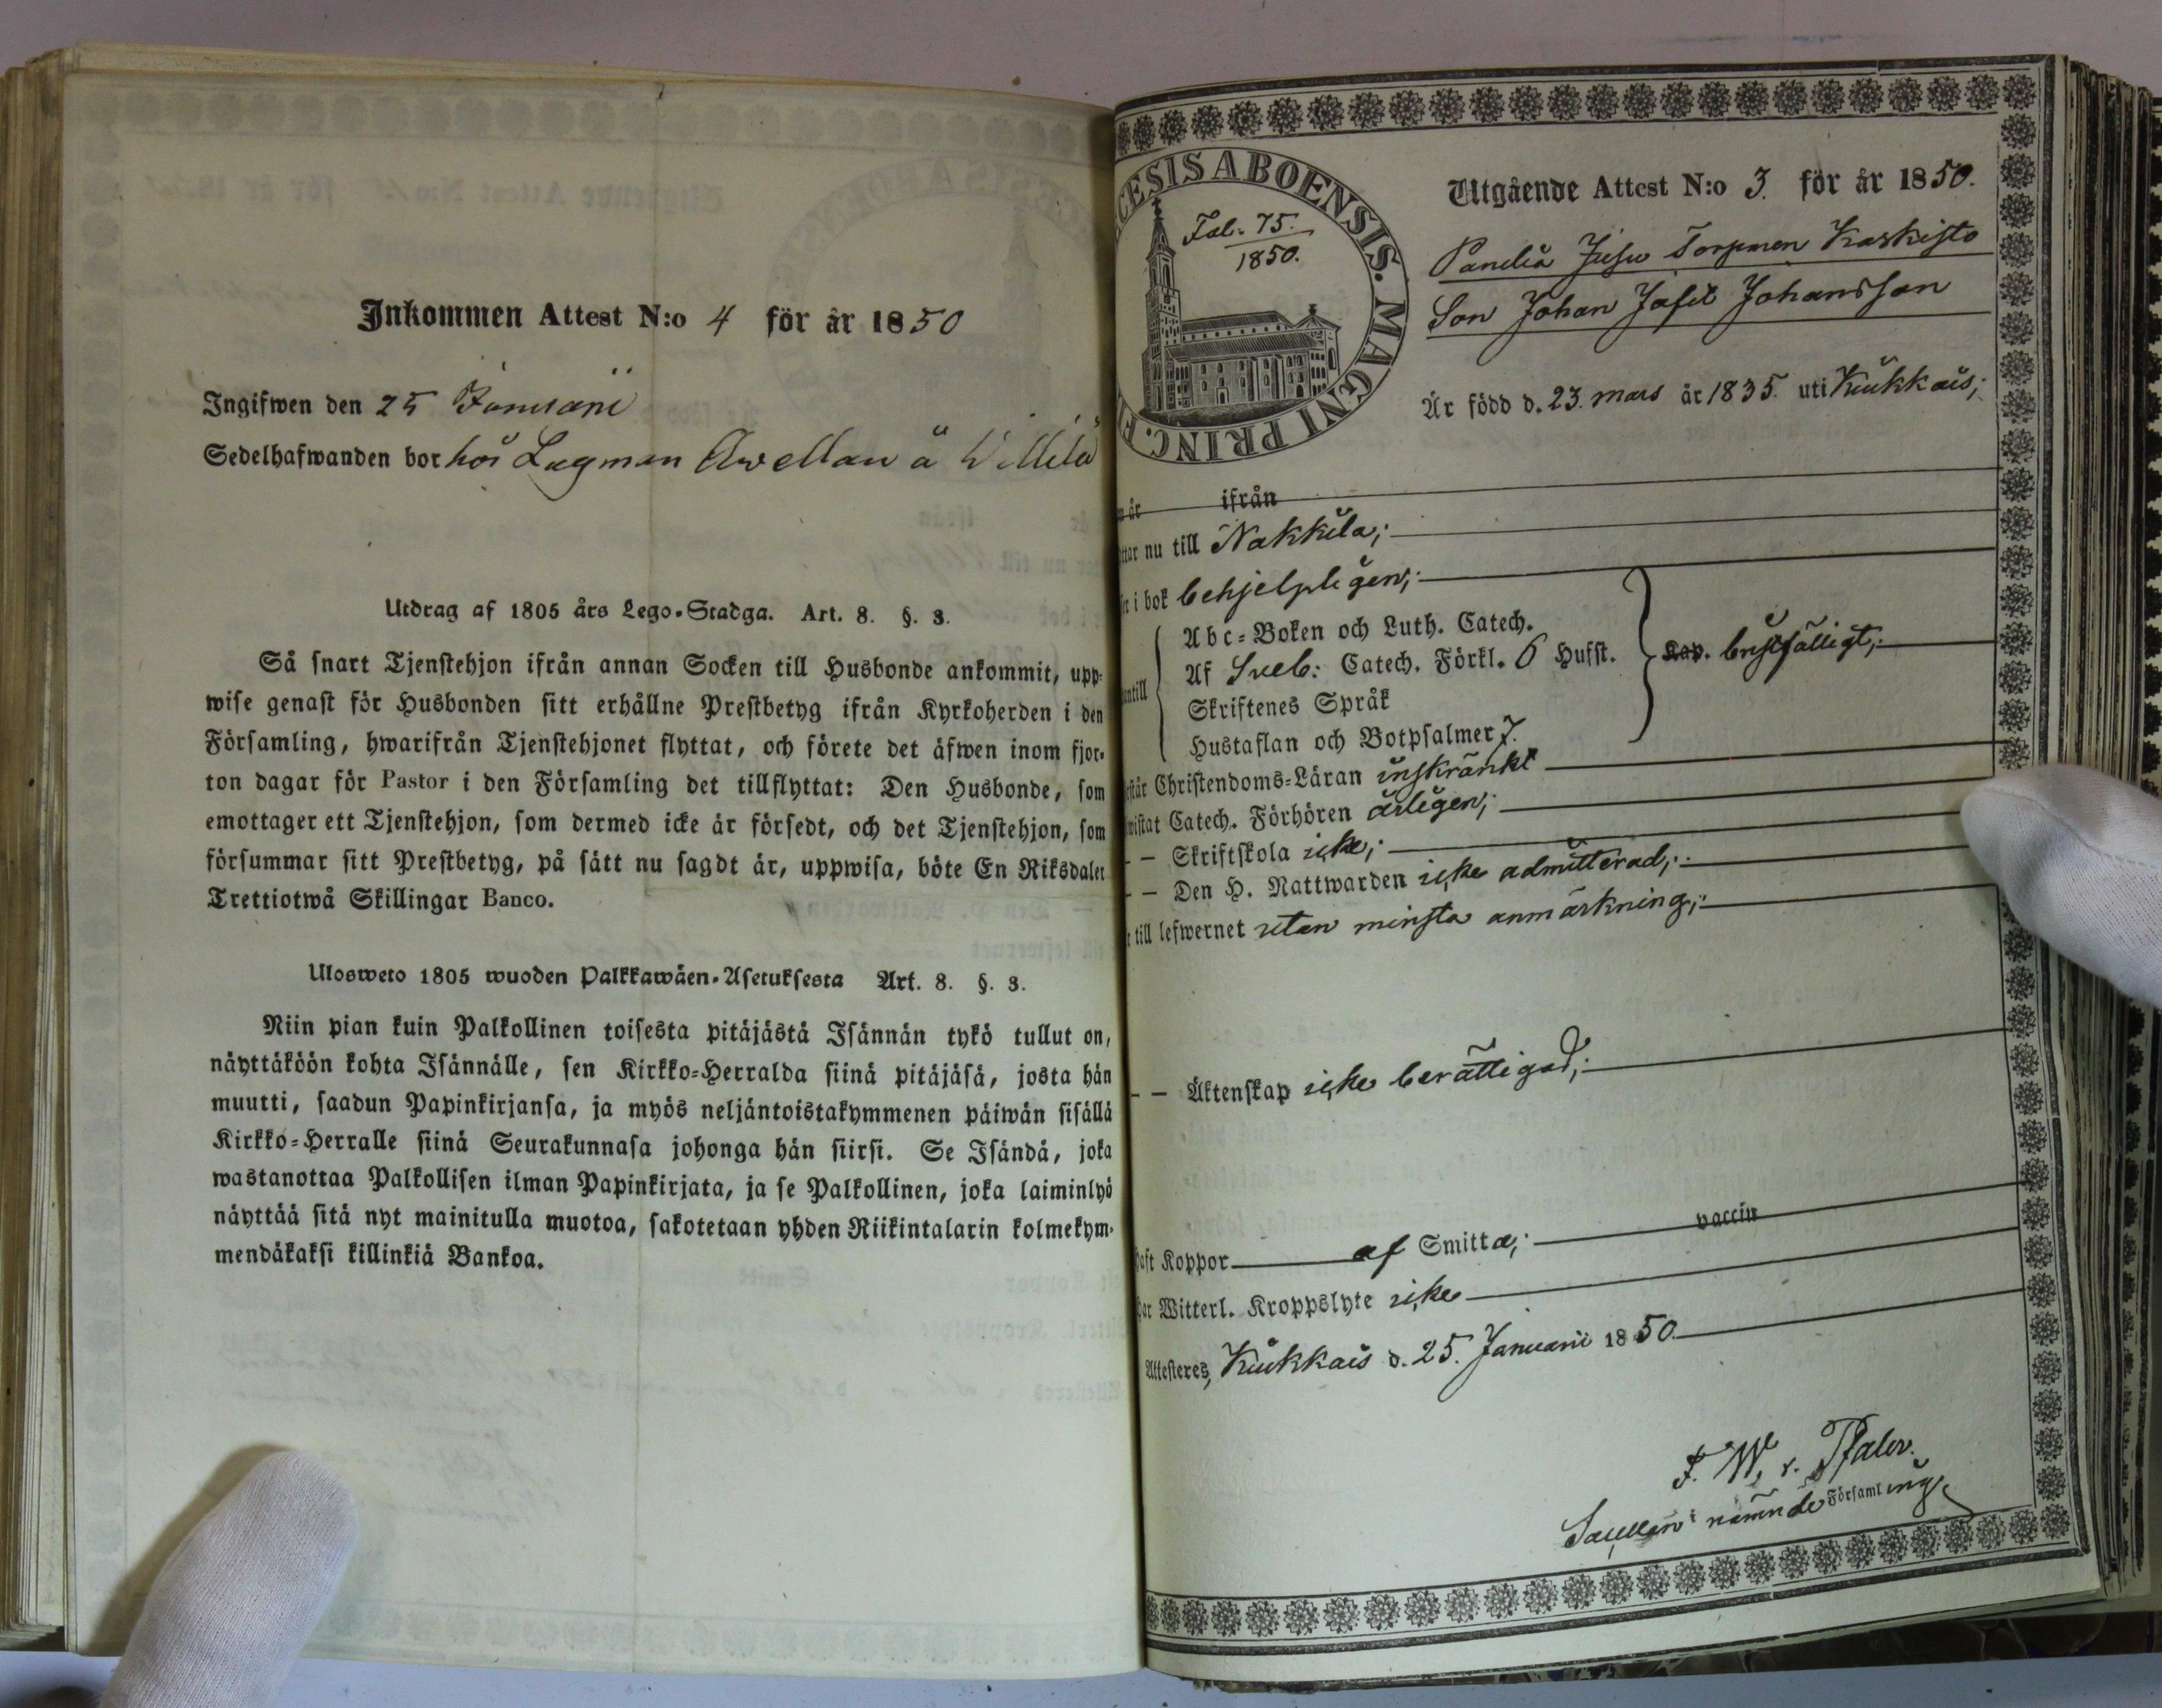 Inkommen Attest N:o 4 för år 1850
Ingifwen den 25 Januarii
Sedelhafwanden bor hos Lagman Avellan å Willilä
Utdrag af 1805 års Lego-Stadga. Art. 8. §. 3.
Så snart Tjenstehjon ifrån annan Socken till Husbonde ankommit, upp-
wise genast för Husbonden sitt erhållne Prestbetyg ifrån Kyrkoherden i den
Församling, hwarifrån Tjenstehjonet flyttat, och förete det äfwen inom fjor-
ton dagar för Pastor i den Församling det tillflyttat: Den Husbonde, som
emottager ett Tjenstehjon, som dermed icke är försedt, och det Tjenstehjon, som
försummar sitt Prestbetyg, på sätt nu sagdt är, uppwisa, böte En Riksdaler
Trettiotwå Skillingar Banco.
Ulosweto 1805 wuoden Palkkawäen-Asetuksesta Art. 8. §. 3.
Niin pian kuin Palkollinen toisesta pitäjästä Isännän tykö tullut on,
näyttäköön kohta Isännälle, sen Kirkko-Herralda siinä pitäjäsä, josta hän
muutti, saadun Papinkirjansa, ja myös neljäntoistakymmenen päiwän sisällä
Kirkko-Herralle siinä Seurakunnasa johonga hän siirsi. Se Isändä, joka
wastanottaa Palkollisen ilman Papinkirjata, ja se Palkollinen, joka laiminlyö
näyttää sitä nyt mainitulla muotoa, sakotetaan yhden Riikintalarin kolmekym-
mendäkaksi killinkiä Bankoa.
CESIS ABOENSIS. MAGNI PRINC. F
Fol. 75.
1850.
Utgående Attest N:o 3. för år 1850.
Panelia Jusu Torparen Kaskisto
Son Johan Josef Johansson
Är född d. 23. mars år 1835. uti Kiukkais;
år ifrån
ttar nu till Nakkila;
i bok behjelpligen;
Abc-Boken och Luth. Catech.
Af Sveb: Catech. Förkl. 6 Hufst.
Skriftenes Språk
Hustaflan och Botpsalmer 7.
antill
Kap. bristfälligt;
står Christendoms-Läran inskränkt
wistat Catech. Förhören årligen;
– – Skriftskola icke;
– – Den H. Nattwarden icke admitterad;
till lefwernet utan minsta anmärkning;
– – Äktenskap icke berättigad;
haft Koppor af Smitta; vaccin
har Witterl. Kroppslyte icke
Attesteres, Kiukkais d. 25. Januarii 1850
F. W. v. Pfaler.
Sacellan i nämnde Församling